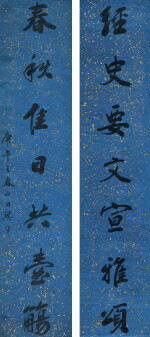 經史要文宣雅頌
春秋佳日共壺觴